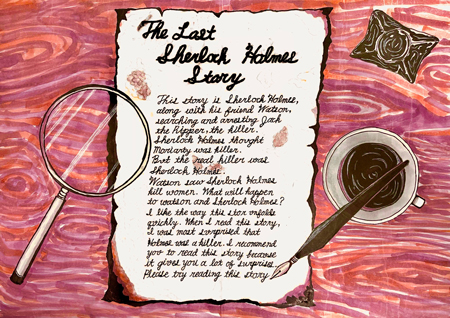 The Last
Sherlock Holmes
Story
This story is Sherlock Holmes,
along with his friend Watson,
searching and arresting Jack
the Ripper, the killer.
Sherlock Holmes thought
Moriarty was killer.
But the real killer was
Sherlock Holmes.
Watson saw Sherlock Holmes
kill women. What will happen
to watson and Sherlock Holmes?
I like the way this stor unfolds
quickly. When I read this story,
I was most surprised that
Holmes was a killer. I recommend
you to read this story because
it gives you a lot of surprises.
Please try reading this story